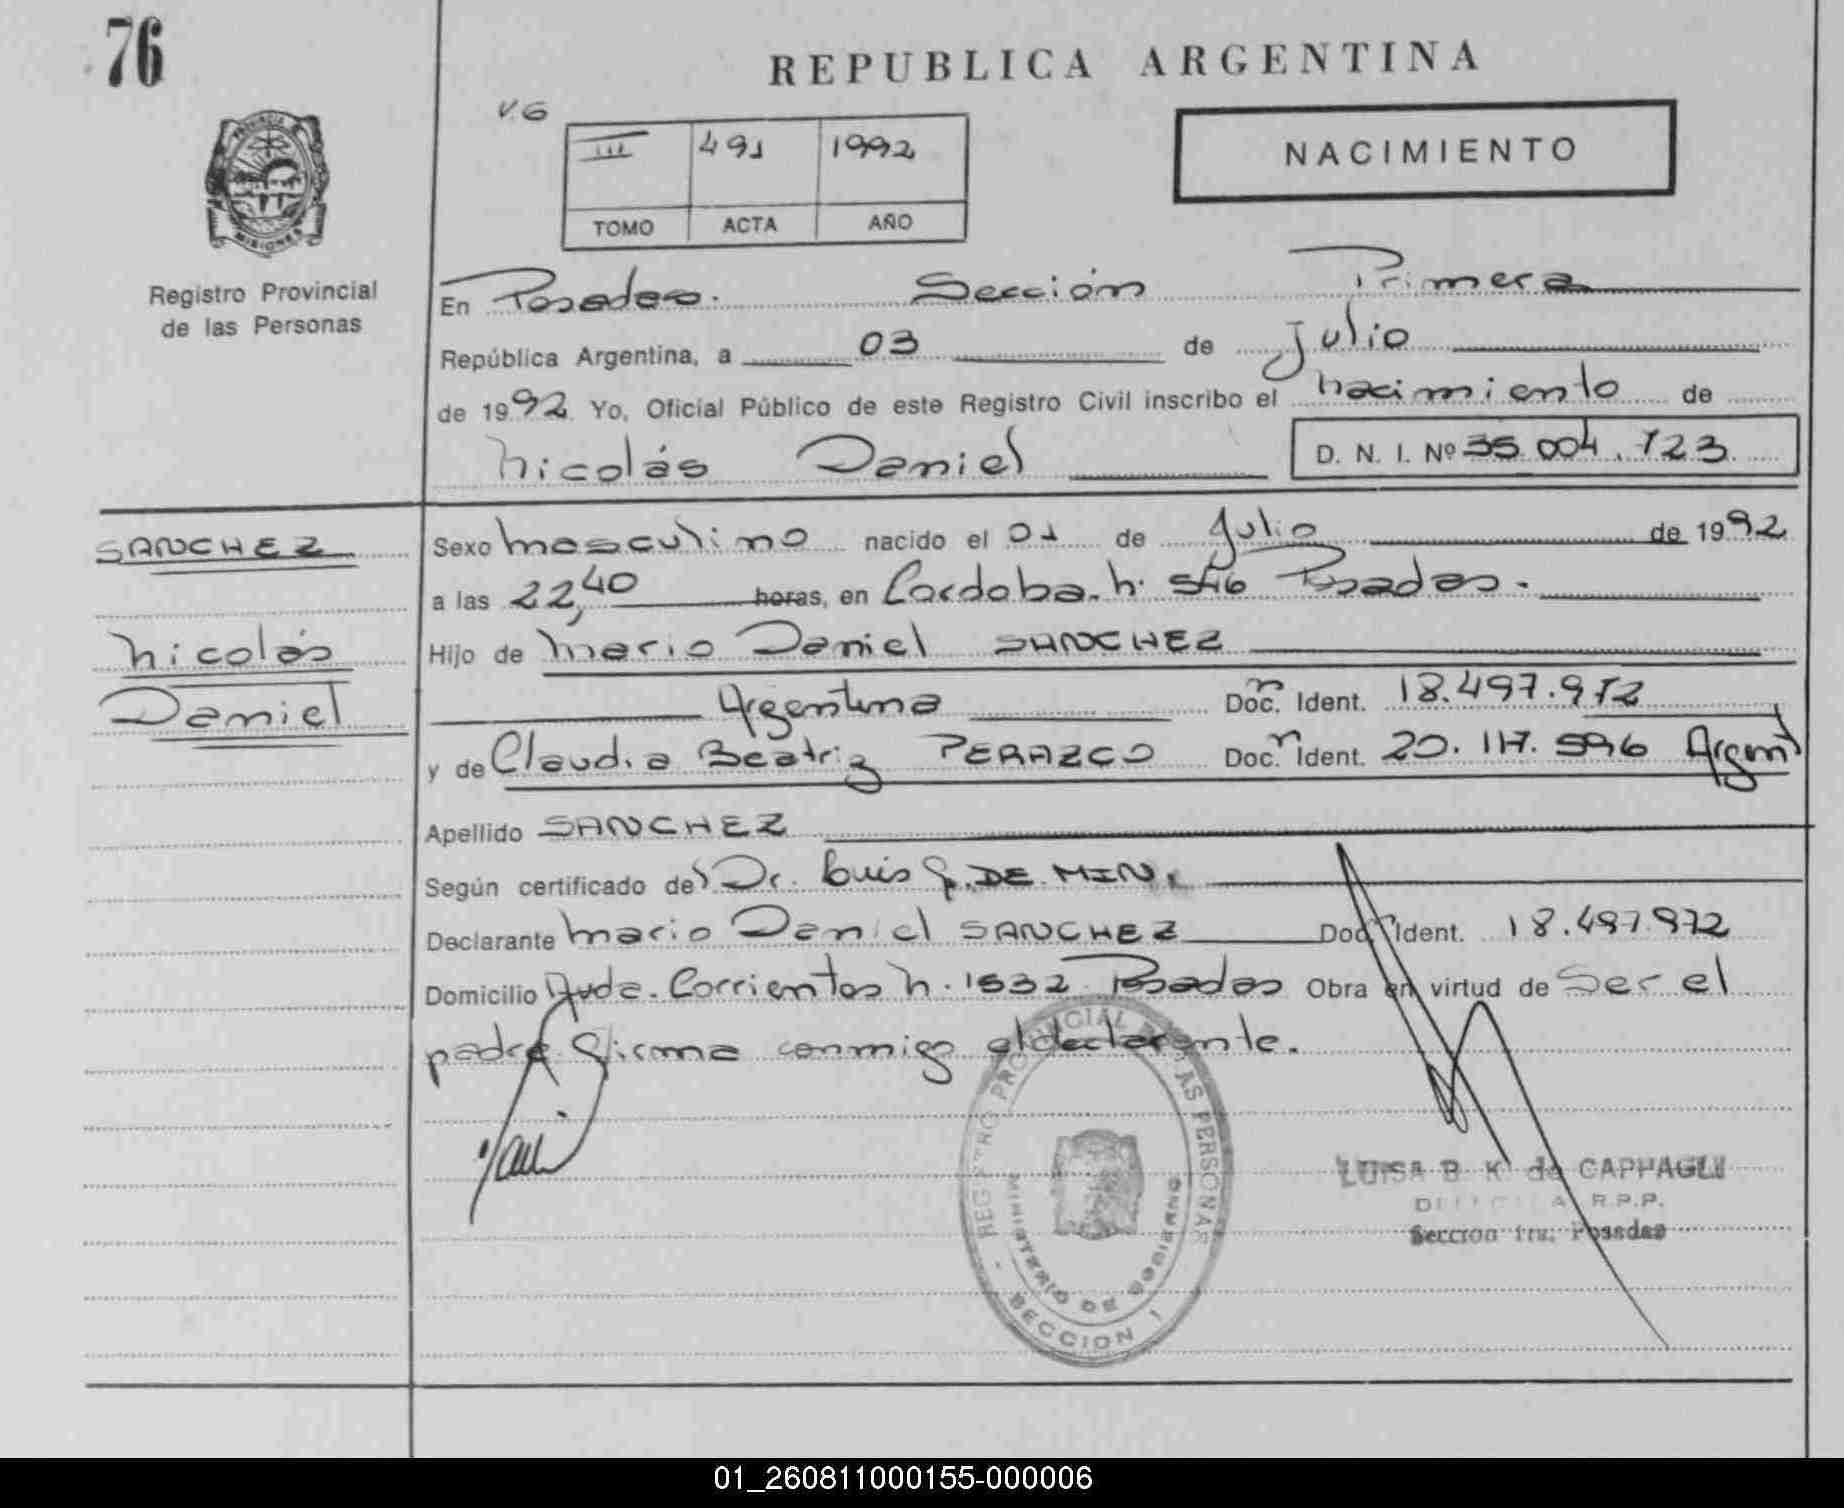 76
REPUBLICA ARGENTINA
V.G
III 491 1992
TOMO ACTA AÑO
NACIMIENTO
PROVINCIA DE
MISIONES
Registro Provincial
de las Personas
En Posadas. Sección Primera
República Argentina, a 03 de Julio
de 1992 Yo, Oficial Público de este Registro Civil inscribo el nacimiento de
Nicolás Daniel D. N. I. Nº 35.004.123
SANCHEZ
Nicolás
Daniel
Sexo masculino nacido el 01 de Julio de 1992
a las 22,40 horas, en Cordoba. N. 546 Posadas.
Hijo de Mario Daniel SANCHEZ
Argentina Doc. Ident. 18.497.972
y de Claudia Beatriz Doc. Ident. 20.117.596 Argent
Apellido SANCHEZ
Según certificado del Dr. Luis G. DE MIN.
Declarante Mario Daniel SANCHEZ Doc. Ident. 18.497.972
Domicilio Avda. Corrientes N. 1532 Posadas Obra en virtud de Ser el
padre firma conmigo el declarante.
REGISTRO PROVINCIAL DE LAS PERSONAS
MINISTERIO DE GOBIERNO
SECCION 1
LUISA B K de CAPPAGLI
R.P.P.
Seccion 1ra. Posadas
01_260811000155-000006